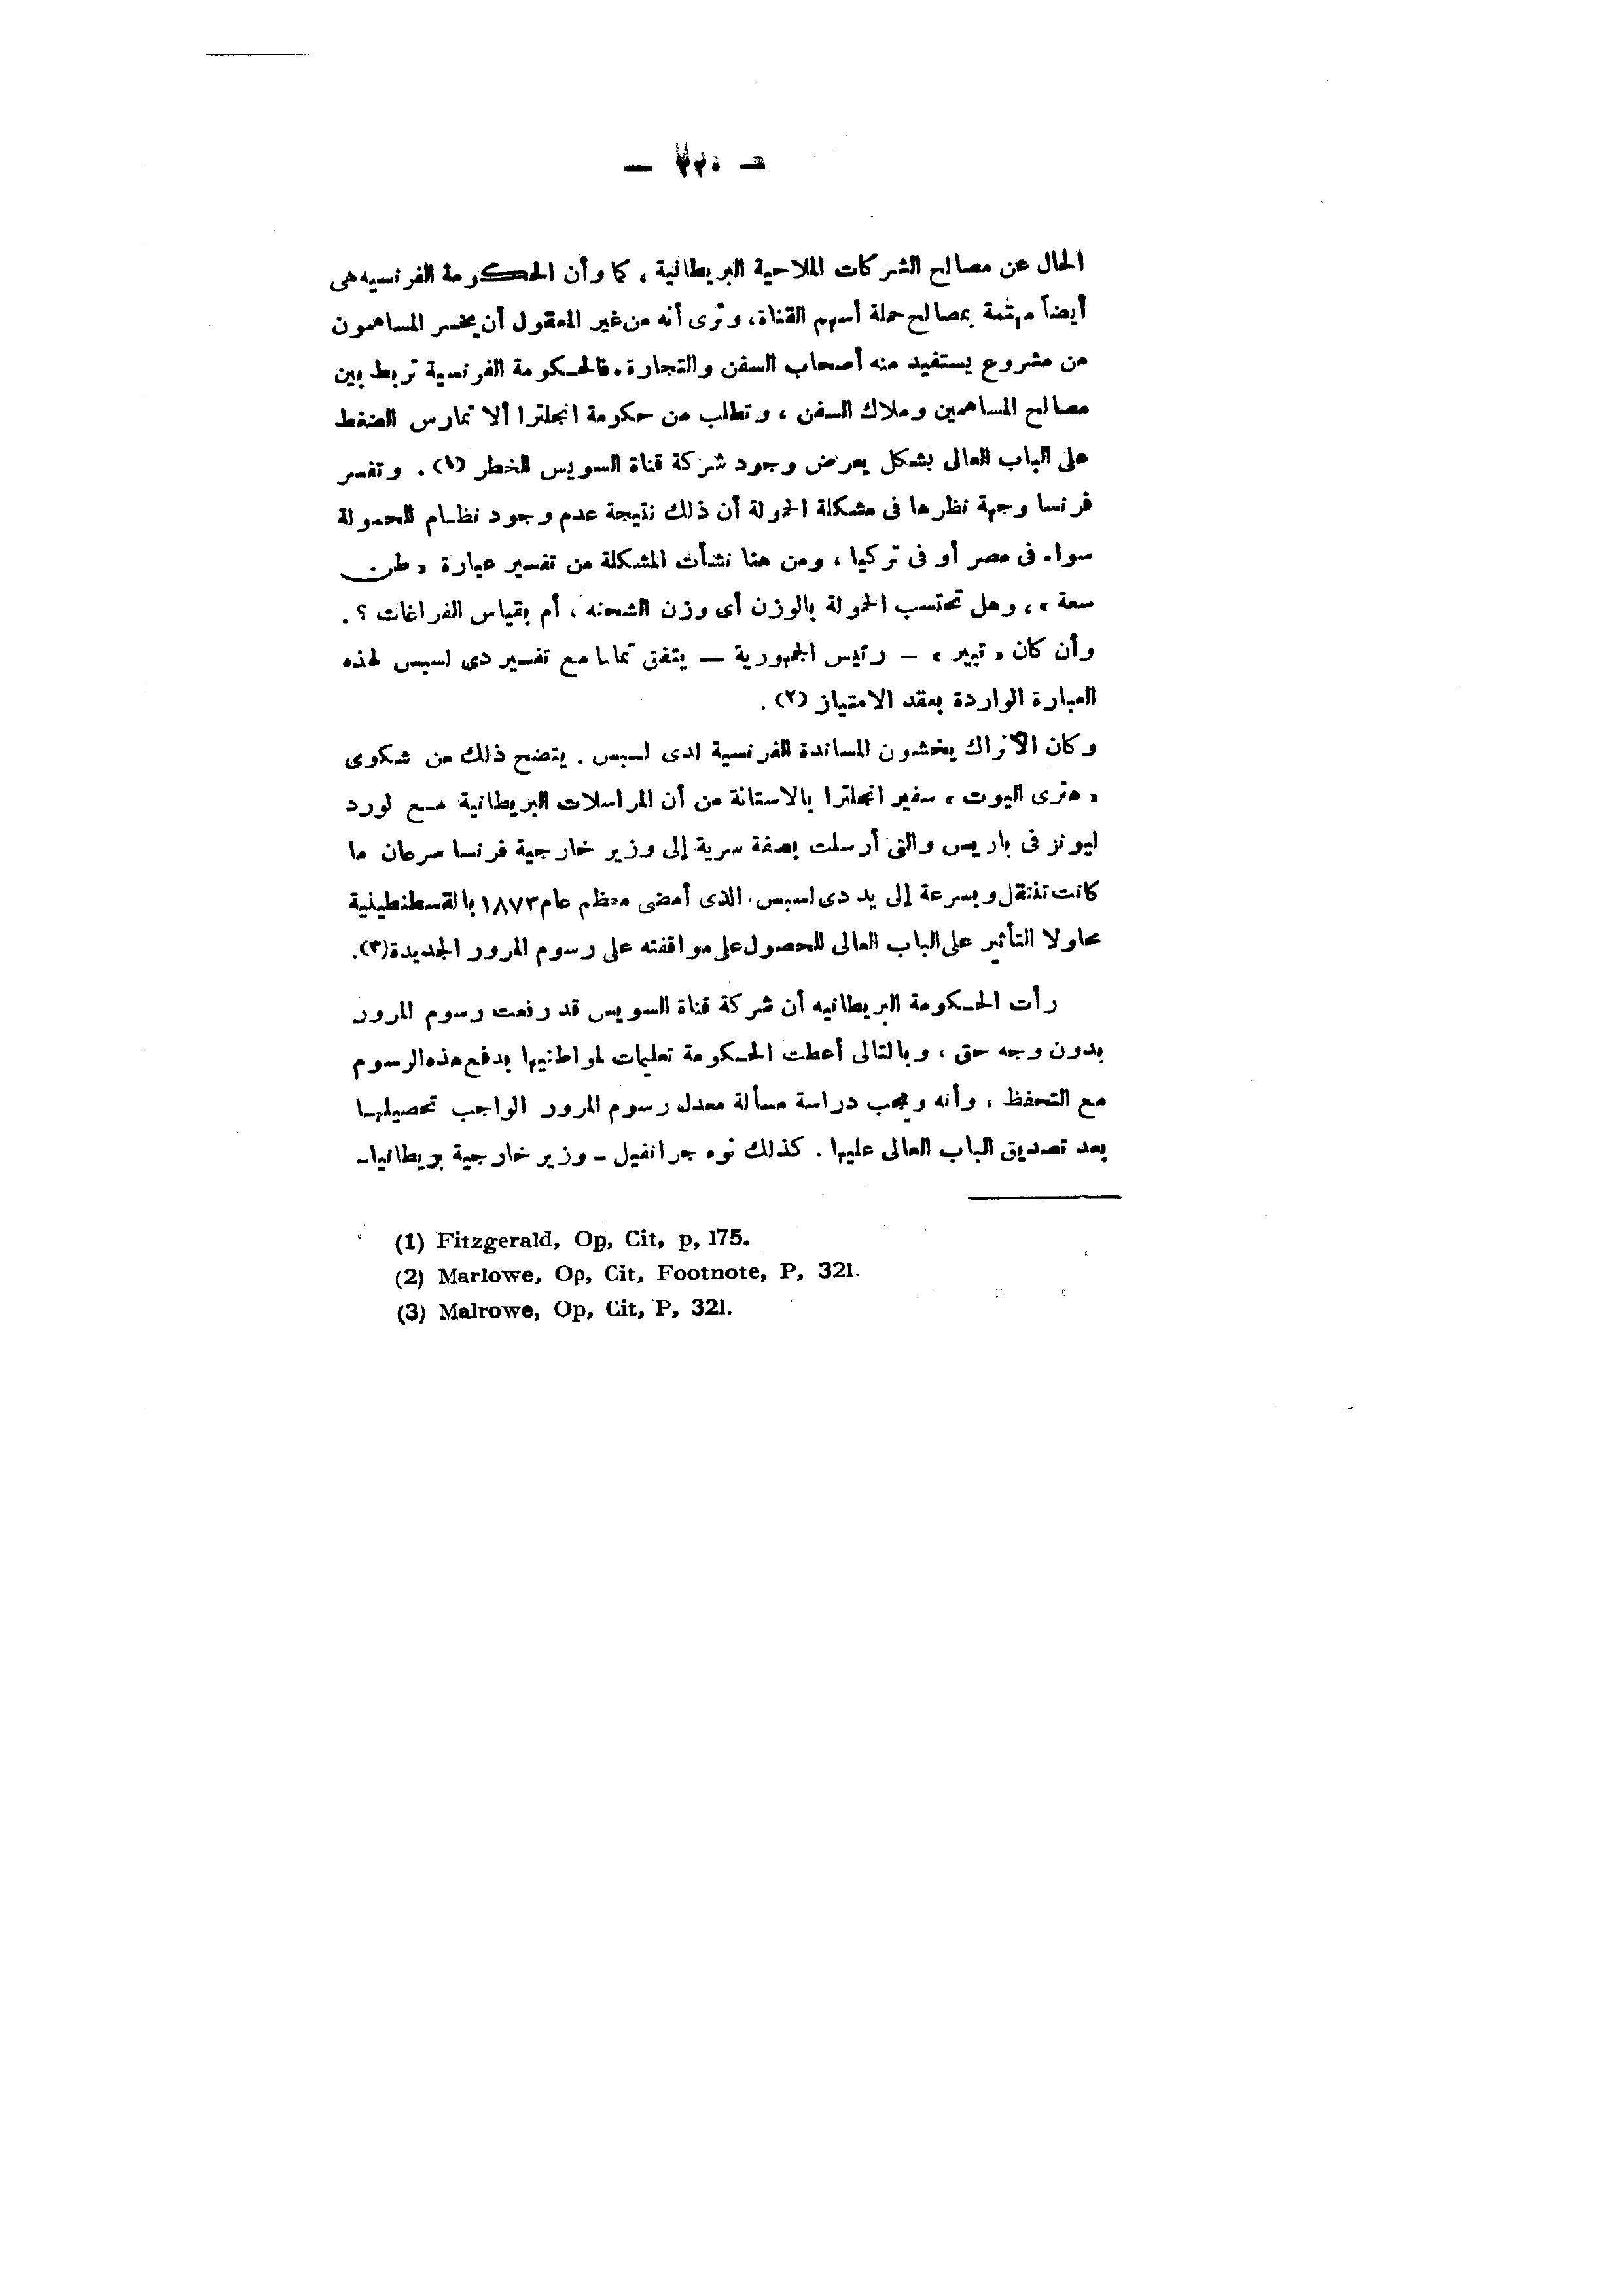 الحال عن مصالح الشركات الملاحية البريطانية ، كما وأن الحكومة الفرنسيه هى
أيضاً مهتمة بمصالح حملة أسهم القناة، وترى أنه من غير المعقول أن يخسر المساهمون
من مشروع يستفيد منه أصحاب السفن والتجارة . فالحكومة الفرنسية تربط بين
مصالح المساهمين وملاك السفن ، وتطلب من حكومة انجلترا ألا تمارس الضغط
على الباب العالى بشكل يعرض وجود شركة قناة السويس للخطر (١) . وتفسر
فرنسا وجهة نظرها فى مشكلة الحمولة أن ذلك نتيجة عدم وجود نظام للحمولة
سواء فى مصر أو فى تركيا ، ومن هنا نشأت المشكلة من تفسير عبارة « طن
سعة » ، وهل تحتسب الحمولة بالوزن أى وزن الشحنه ، أم بقياس الفراغات ؟ .
وأن كان « تيير » — رئيس الجمهورية — يتفق تماما مع تفسير دى لسبس لهذه
العبارة الواردة بعقد الامتياز (٢) .
وكان الأتراك يخشون المساندة الفرنسية لدى لسبس . يتضح ذلك من شكوى
« هنرى اليوت » سفير انجلترا بالاستانة من أن المراسلات البريطانية مع لورد
ليونز فى باريس والتى أرسلت بصفة سرية إلى وزير خارجية فرنسا سرعان ما
كانت تنتقل وبسرعة إلى يد دى لسبس . الذى أمضى معظم عام ١٨٧٣ بالقسطنطينية
محاولا التأثير على الباب العالى للحصول على موافقته على رسوم المرور الجديدة (٣) .
رأت الحكومة البريطانيه أن شركة قناة السويس قد رفعت رسوم المرور
بدون وجه حق ، وبالتالى أعطت الحكومة تعليمات لمواطنيها بدفع هذه الرسوم
مع التحفظ ، وأنه ويجب دراسة مسألة معدل رسوم المرور الواجب تحصيلها
بعد تصديق الباب العالى عليها . كذلك نوه جرانفيل – وزير خارجية بريطانيا –
(1) Fitzgerald, Op, Cit, p, 175.
(2) Marlowe, Op, Cit, Footnote, P, 321.
(3) Malrowe, Op, Cit, P, 321.